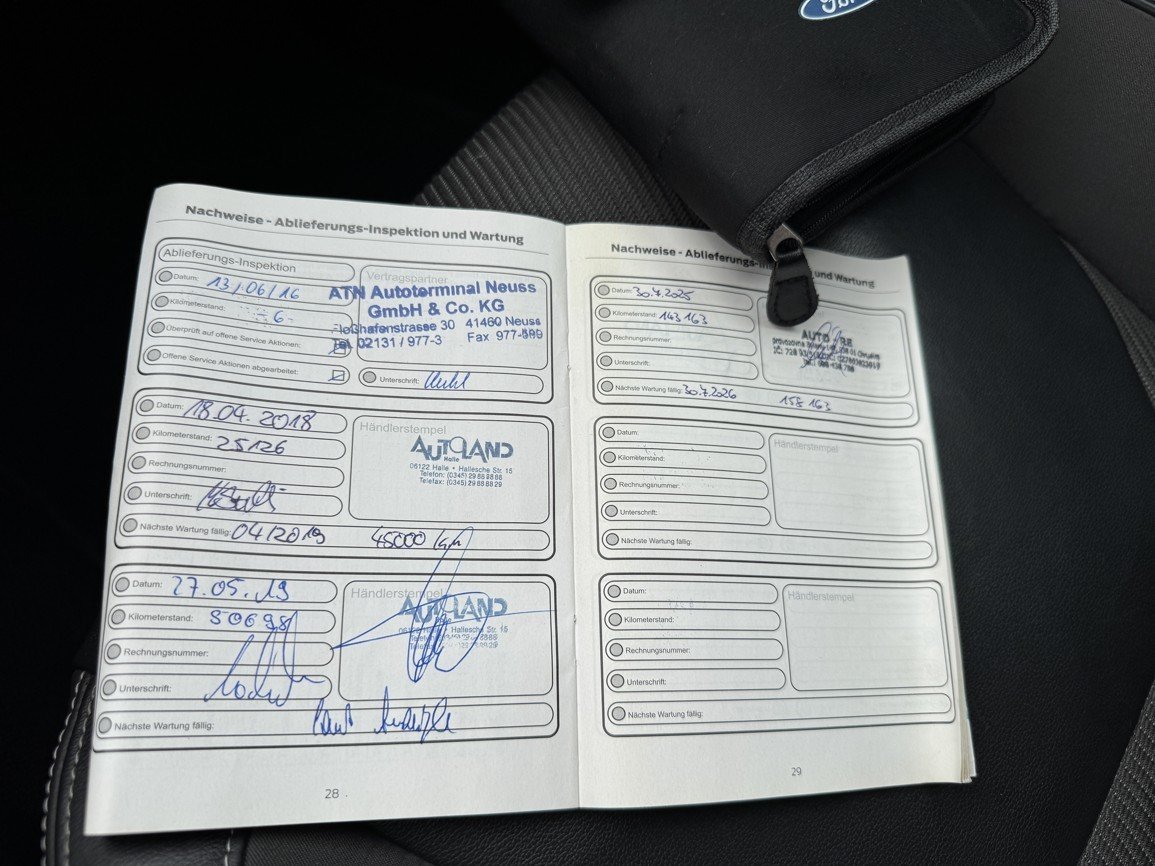 Ford
Nachweise - Ablieferungs-Inspektion und Wartung
Ablieferungs-Inspektion
Datum: 13/06/16
Kilometerstand: 6-
Überprüft auf offene Service Aktionen:
Offene Service Aktionen abgearbeitet:
Vertragspartner
ATN Autoterminal Neuss
GmbH & Co. KG
Floßhafenstrasse 30 41460 Neuss
Tel. 02131 / 977-3 Fax 977-599
Unterschrift:
Datum: 18.04.2018
Kilometerstand: 25126
Rechnungsnummer:
Unterschrift:
Nächste Wartung fällig: 04/2019 45000 km
Händlerstempel
AUTOLAND
Halle
06122 Halle • Hallesche Str. 15
Telefon: (0345) 29 88 88 88
Telefax: (0345) 29 88 88 29
Datum: 27.05.19
Kilometerstand: 50698
Rechnungsnummer:
Unterschrift:
Nächste Wartung fällig:
Händlerstempel
AUTOLAND
Hallesche Str. 15
28
Nachweise - Ablieferungs-In und Wartung
Datum: 30.7.2025
Kilometerstand: 143 163
Rechnungsnummer:
Unterschrift:
Nächste Wartung fällig: 30.7.2026 158 163
AUTO
Datum:
Kilometerstand:
Rechnungsnummer:
Unterschrift:
Nächste Wartung fällig:
Händlerstempel
Datum:
Kilometerstand:
Rechnungsnummer:
Unterschrift:
Nächste Wartung fällig:
Händlerstempel
29